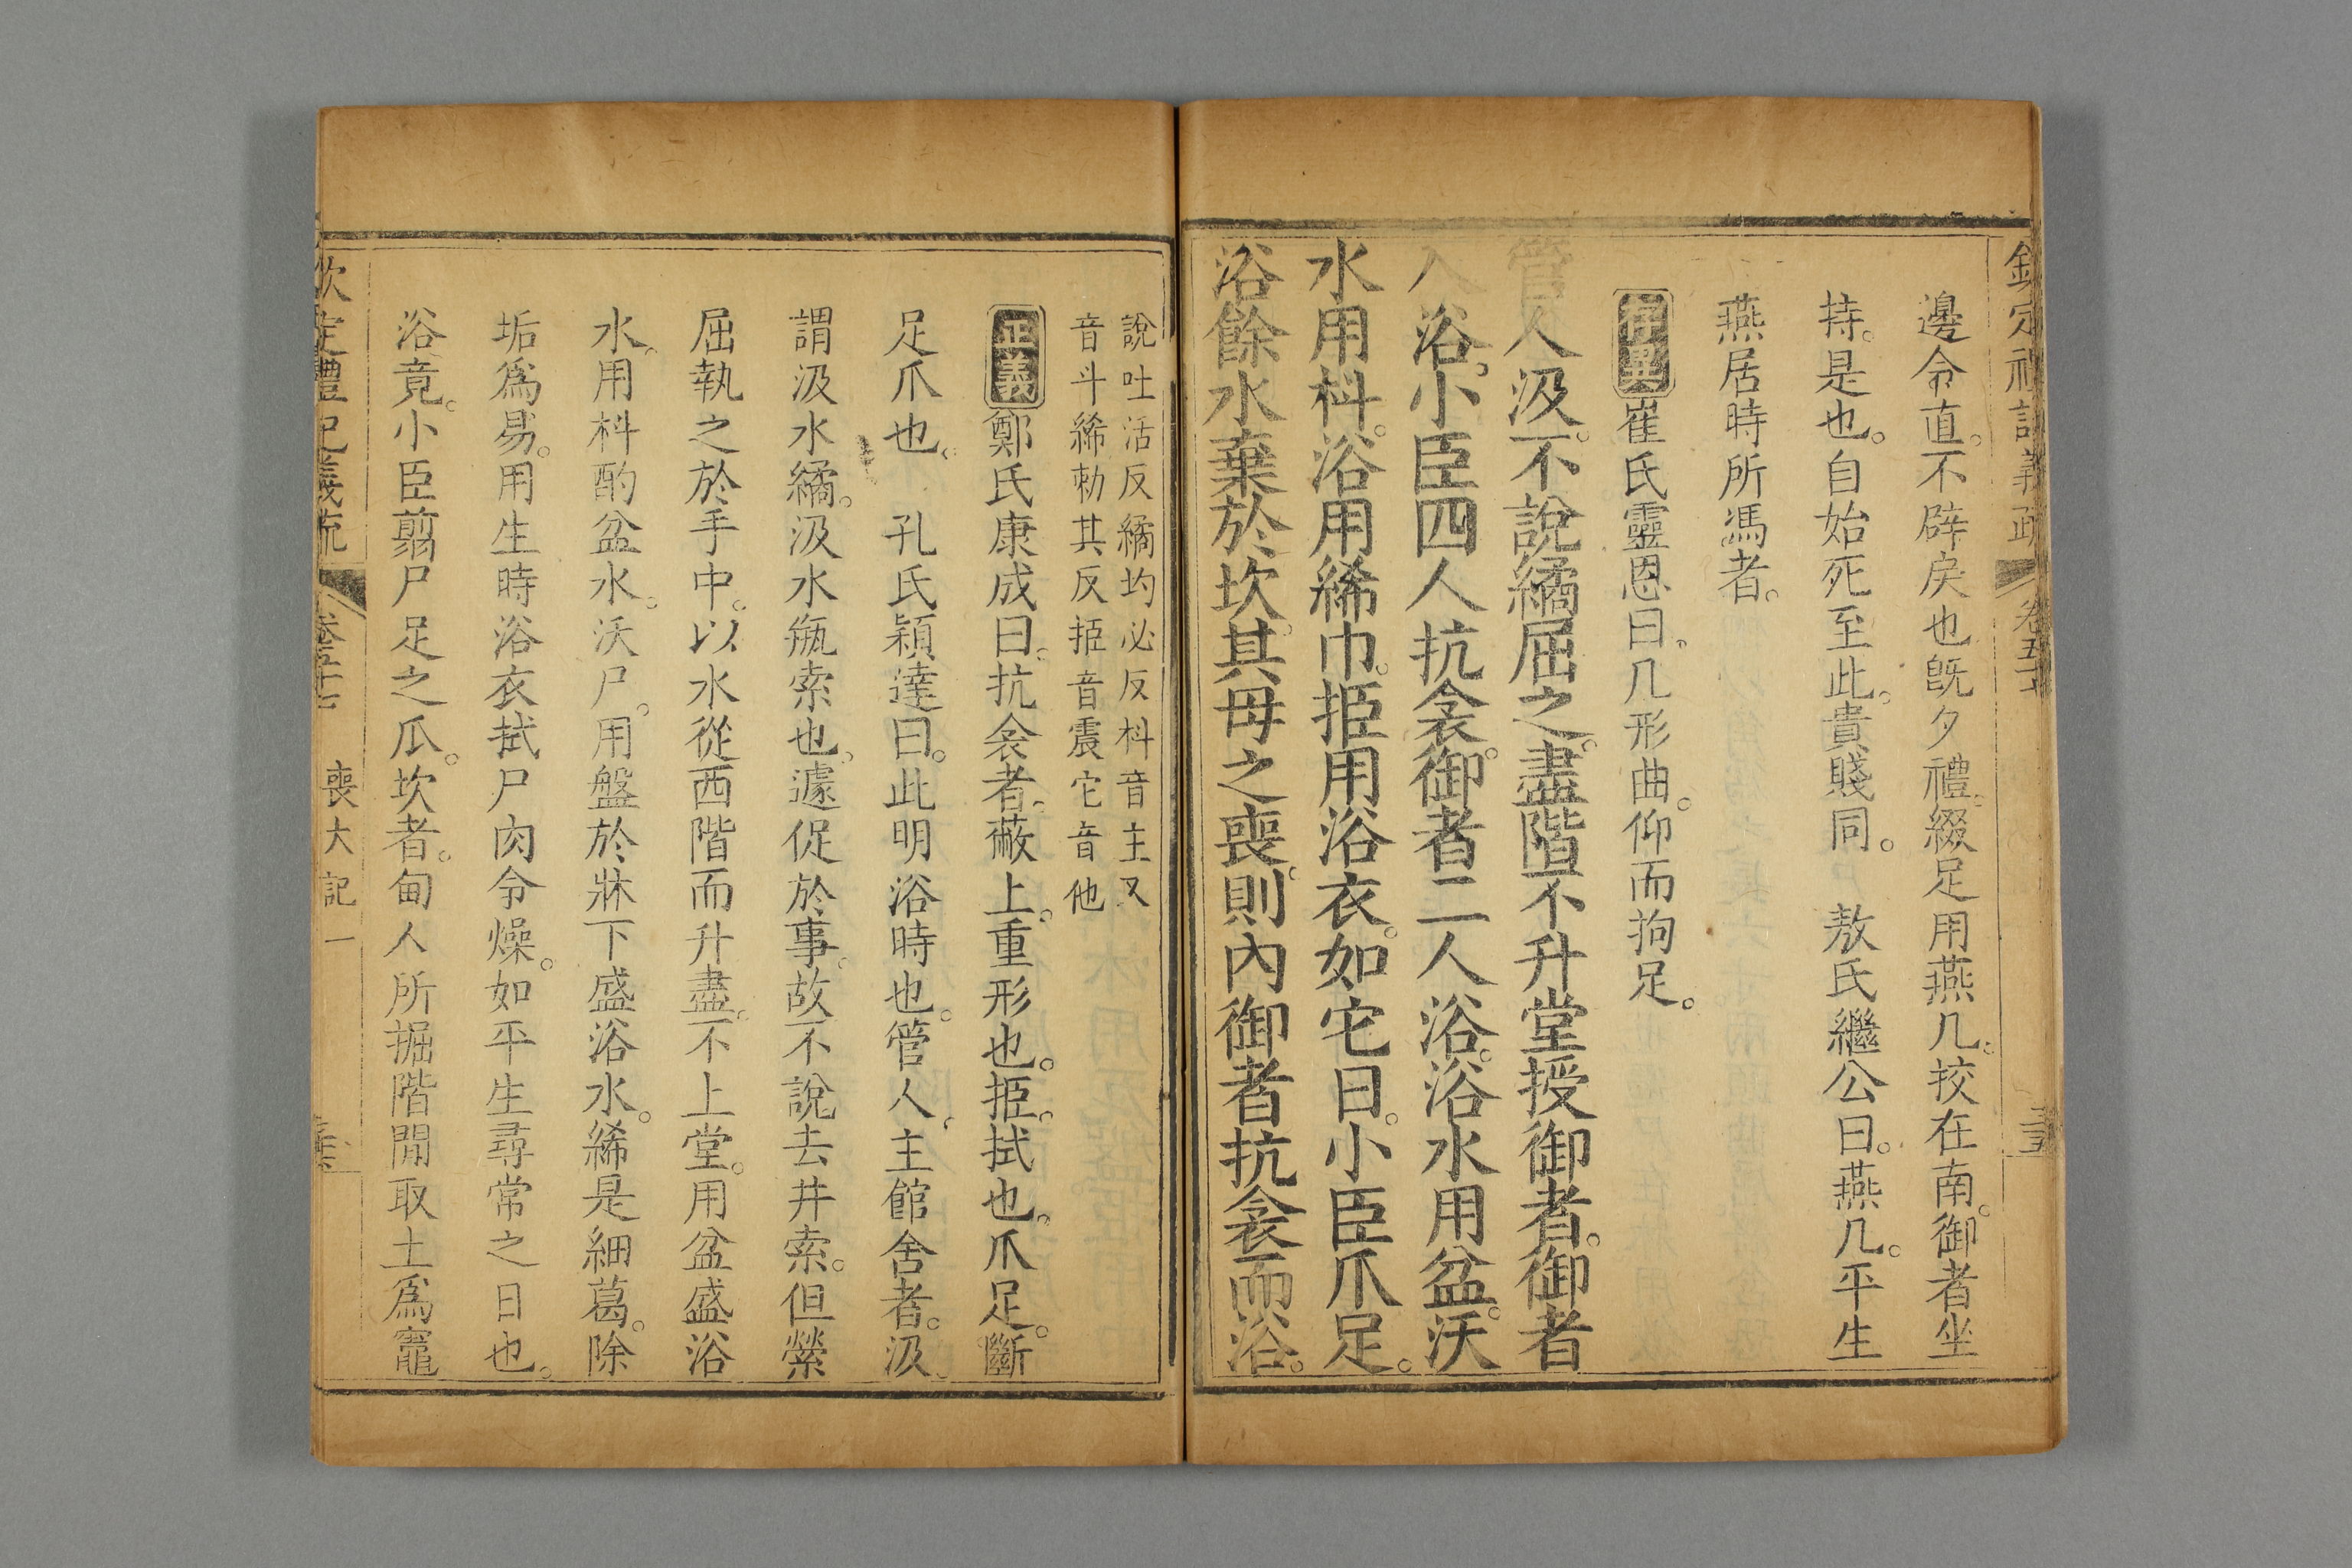 邊令直。不辟戾也旣夕禮。綴足用燕几。挍在南。御者坐
持。是也。自始死至此。貴賤同。 敖氏繼公曰。燕几。平生
燕居時所馮者。
存異崔氏靈恩曰。几形曲。仰而拘足。
管人汲。不說繘屈之。盡階不升堂授御者。御者
入浴。小臣四人抗衾。御者二人浴。浴水用盆。沃
水用枓。浴用絺巾。挋用浴衣。如它日。小臣爪足。
浴餘水棄於坎。其母之喪。則內御者抗衾而浴。
說吐活反繘圴必反枓音主又
音斗絺勑其反挋音震它音他
正義鄭氏康成曰。抗衾者。蔽上。重形也。挋。拭也。爪足。斷
足爪也。 孔氏穎達曰。此明浴時也。管人、主館舍者。汲。
謂汲水繘。汲水瓶索也。遽促於事。故不說去井索。但縈
屈執之於手中。以水從西階而升盡。不上堂。用盆盛浴
水。用枓酌盆水。沃尸。用盤於牀下盛浴水。絺是細葛。除
垢爲易。用生時浴衣拭尸肉令燥。如平生尋常之日也。
浴竟。小臣翦尸足之爪。坎者。甸人所掘階閒取土爲竈
喪大記一